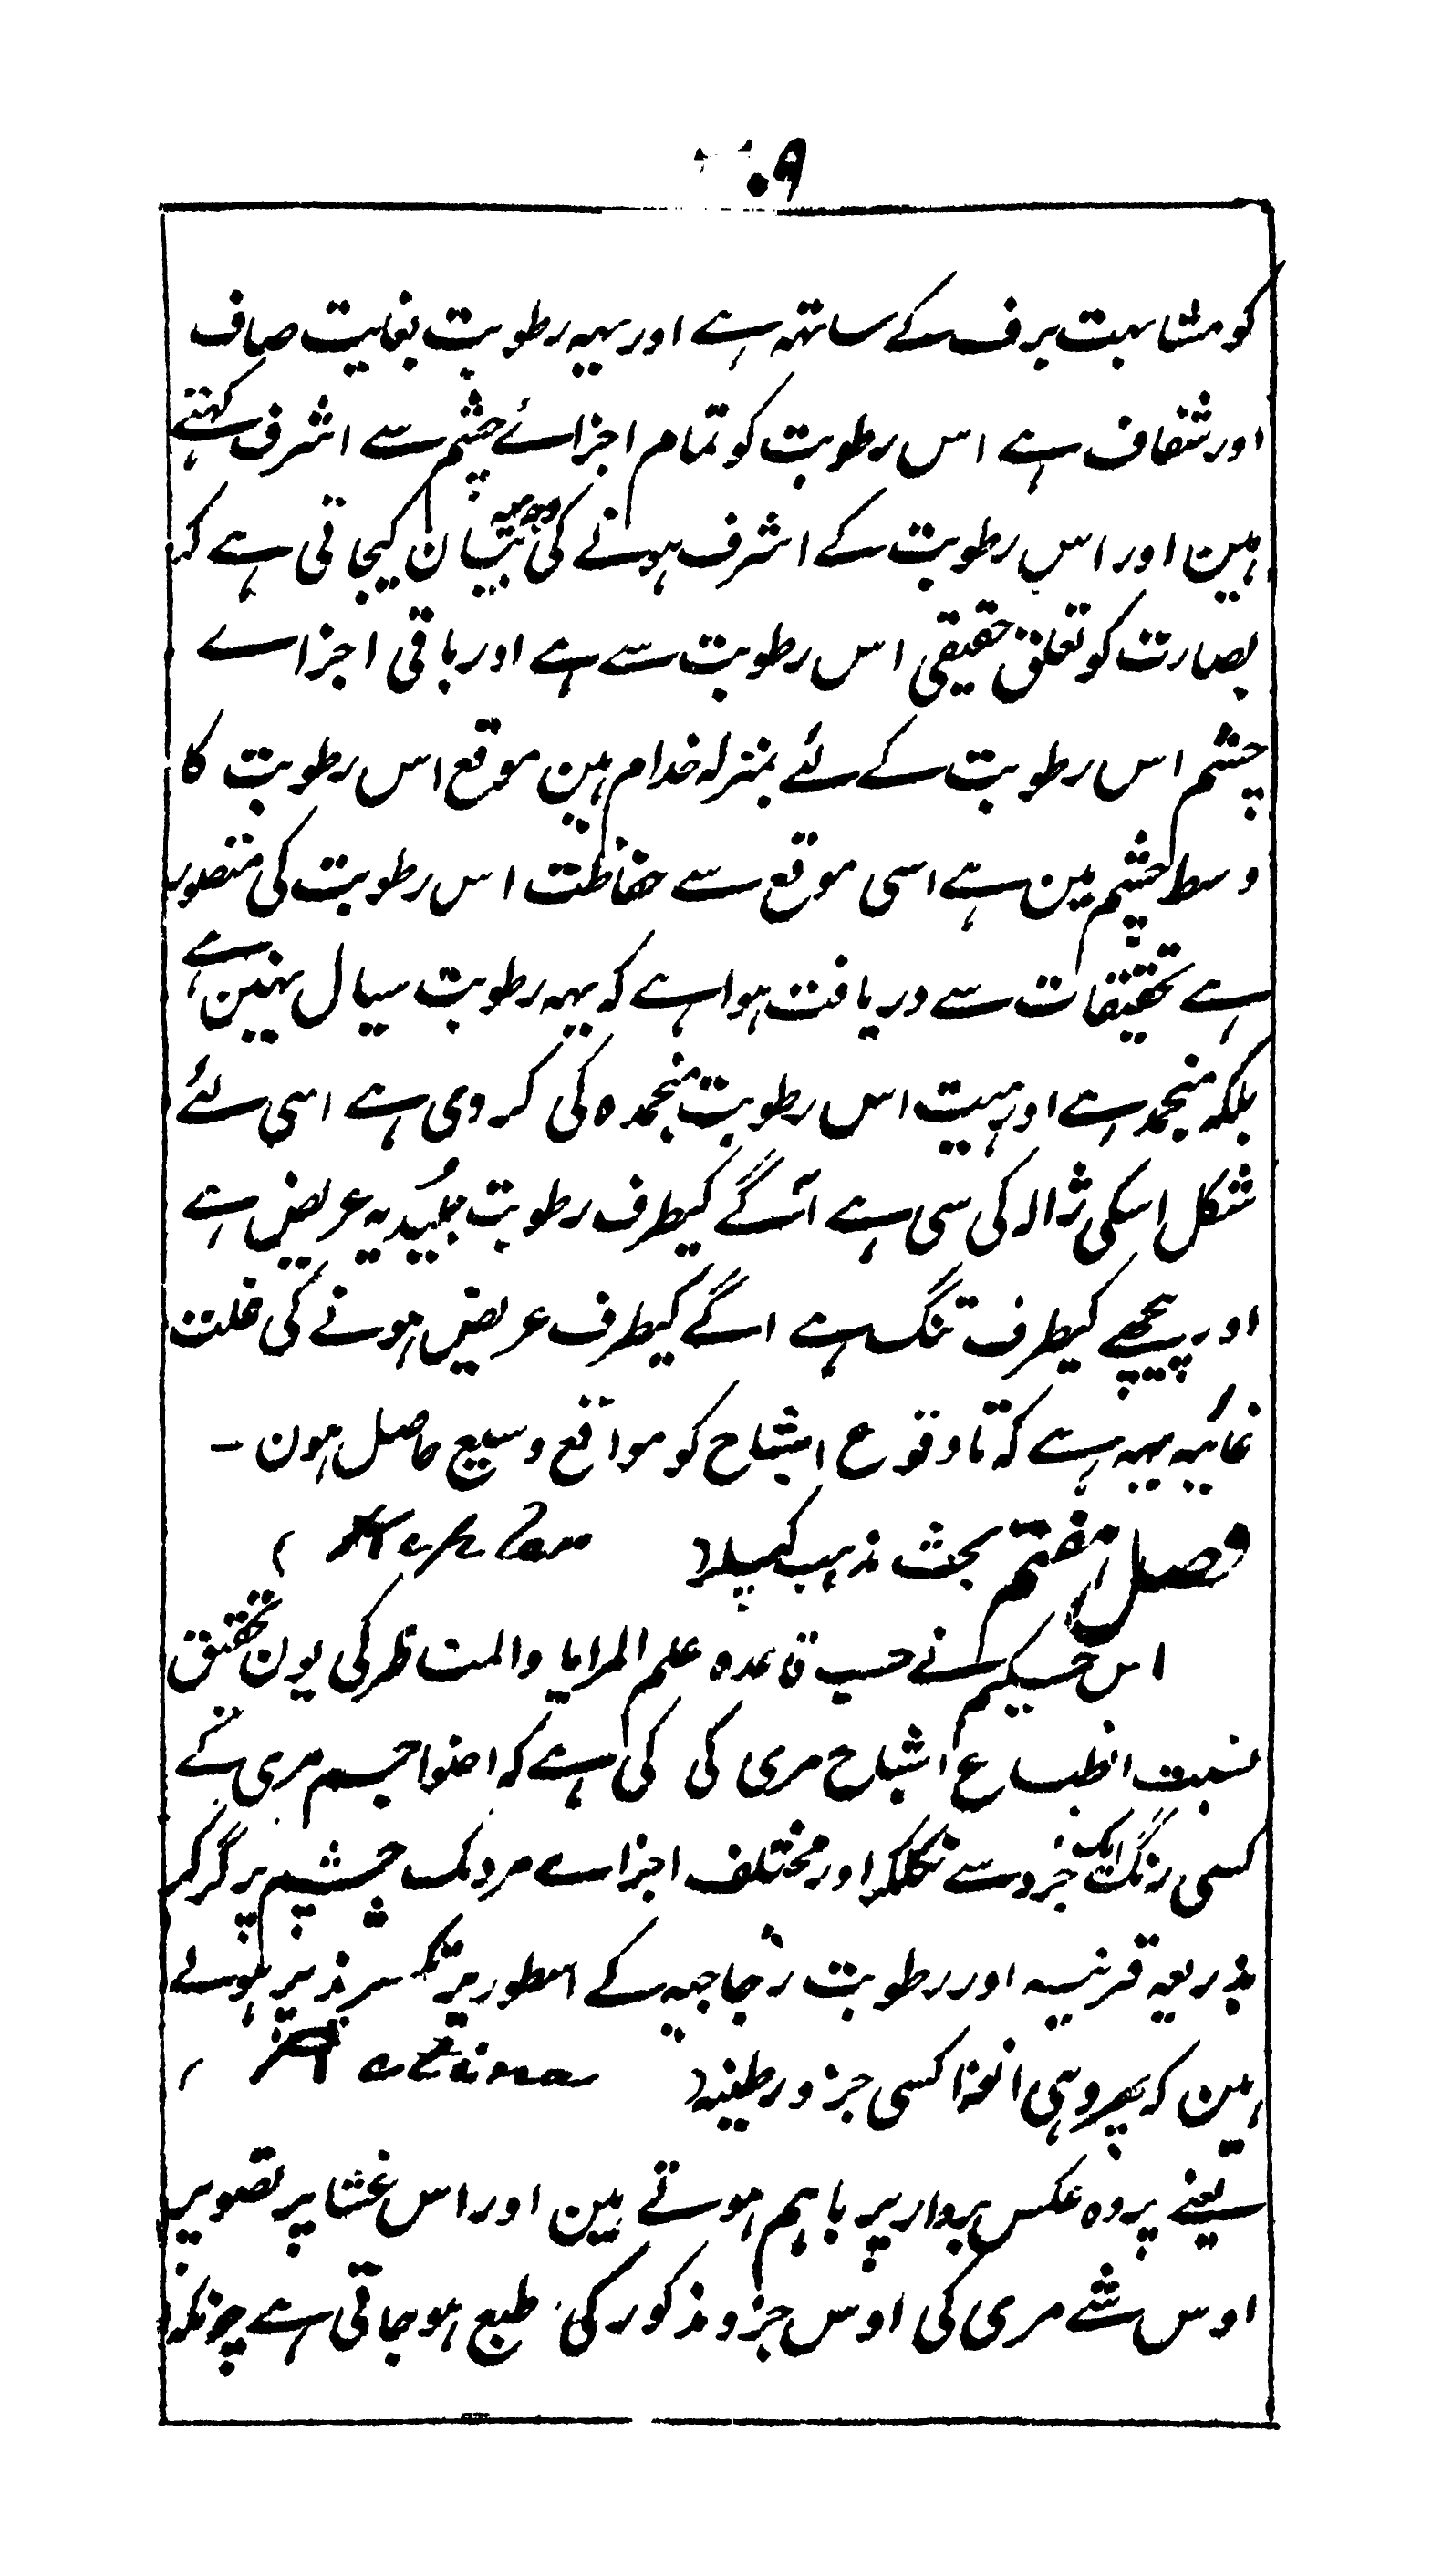 ۰۹
کو مشابہت برف کے ساتھہ ہے اور یہہ رطوبت بغایت صاف
اور شفاف ہے اس رطوبت کو تمام اجزائے چشم سے اشرف کہتے
ہین اور اس رطوبت کے اشرف ہونے کی وجہہ یہہ بیان کیجاتی ہے کہ
بصارت کو تعلق حقیقی اس رطوبت سے ہے اور باقی اجزاے
چشم اس رطوبت کے لئے بمنزلہ خدام ہین موقع اس رطوبت کا
وسط چشم مین ہے اسی موقع سے حفاظت اس رطوبت کی متصور
ہے تحقیقات سے دریافت ہوا ہے کہ یہہ رطوبت سیال نہین ہے
بلکہ منجمد ہے اور ہیئت اس رطوبت منجمدہ کی کروی ہے اسی لئے
شکل اسکی ژالہ کی سی ہے آگے کیطرف رطوبت جلیدیہ عریض ہے
اور پیچھے کیطرف تنگ ہے اگے کیطرف عریض ہونے کی علت
غائیہ یہہ ہے کہ تا وقوع اشباح کو مواقع وسیع حاصل ہون ۔
فصل ہفتم بحث مذہب کیپلر ( Kepler )
اس حکیم نے حسب قاعدہ علم المرایا والمناظر کی یون تحقیق
نسبت انطباع اشباح مری کی کی ہے کہ اضوا جسم مری کے
کسی رنگ ایک جزو سے نکلکر اور مختلف اجزاے مردمک چشم پر گر کر
بذریعہ قرنیہ اور رطوبت زجاجیہ کے اسطور پر تکسر پذیر ہوتے
ہین کہ پھر وہی اضوا کسی جزو رطینہ ( Retina )
یعنے پردہ عکس بردار پر باہم ہوتے ہین اور اس غشا پر تصویر
اوس شے مری کی اوس جزو مذکور کی طبع ہو جاتی ہے چونکہ